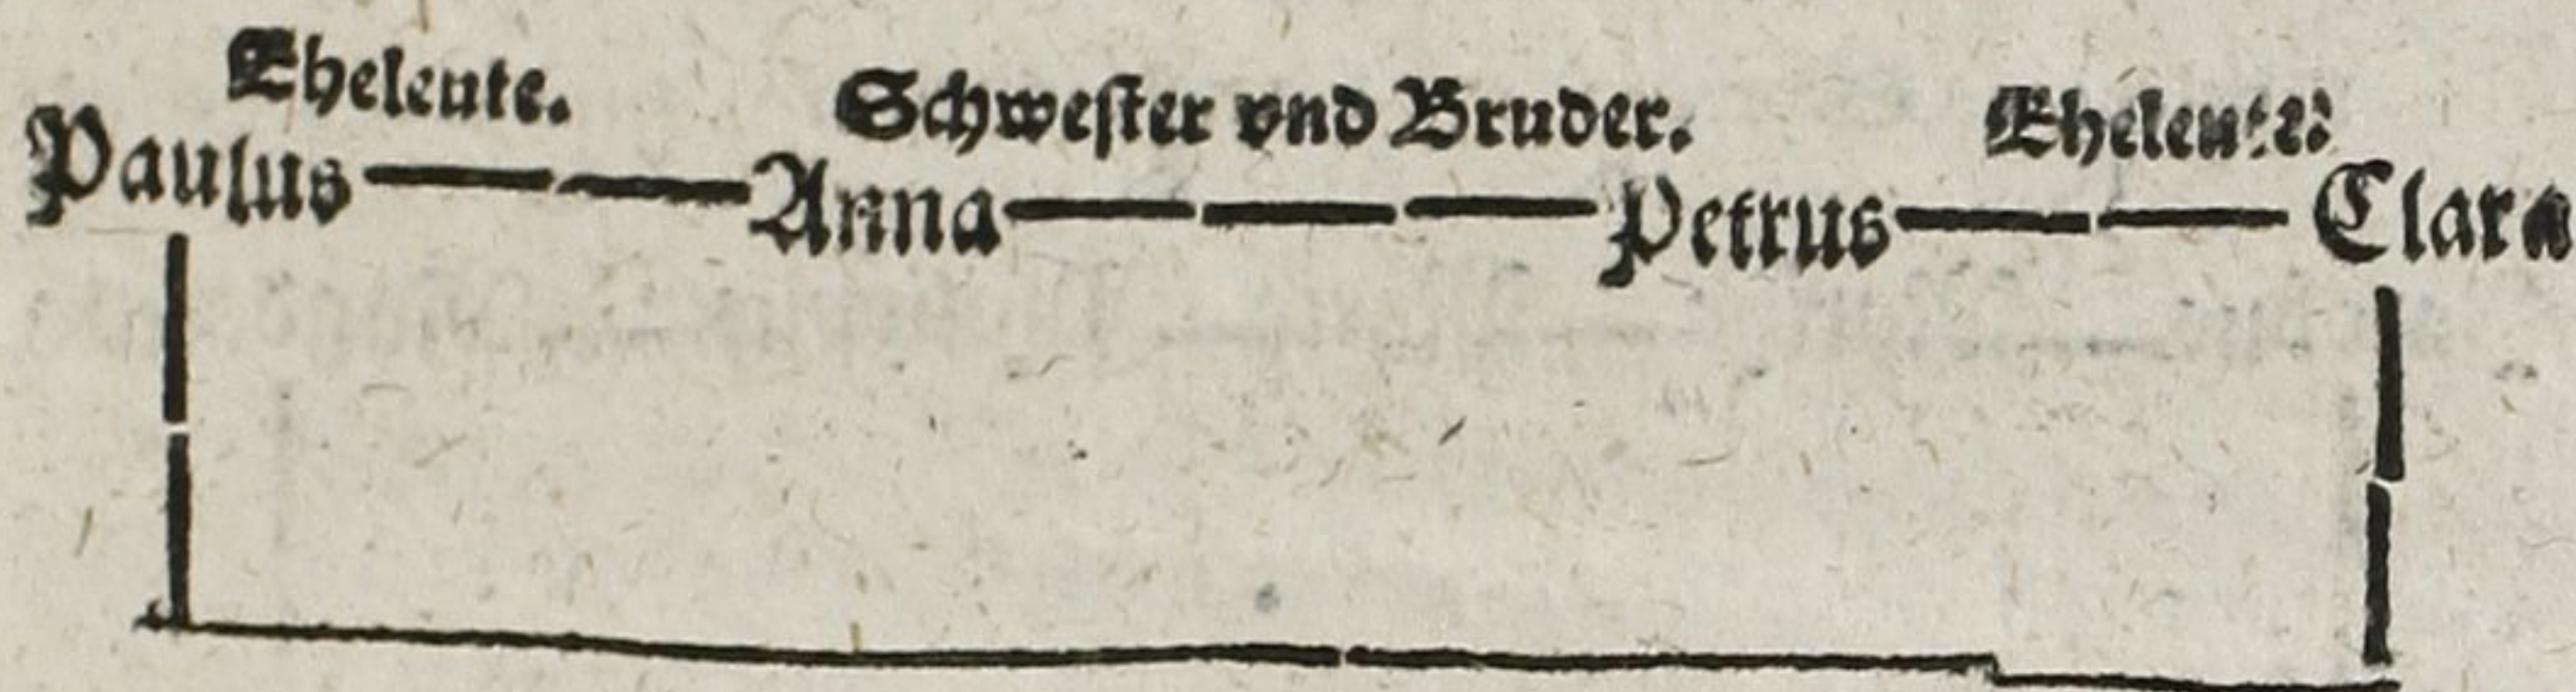 Eheleute. Schweſter vnd Bruder. Eheleute.
Paulus Anna Petrus Clara